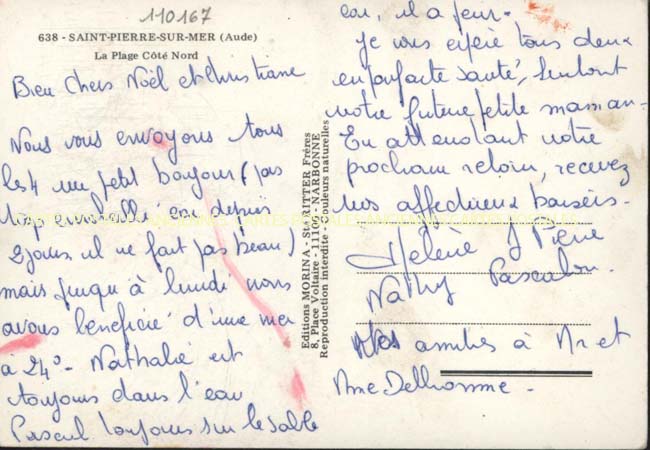 110167
638 - SAINT-PIERRE-SUR-MER (Aude)
La Plage Côté Nord
Bien Chers Noël et Christiane
Nous vous envoyons tous
les 4 un petit bonjour (pas
trop ensoleillé car depuis
2 jours il ne fait pas beau)
mais jusqu'à lundi nous
avons bénéficié d'une mer
à 24° - Nathalie est
toujours dans l'eau
Pascal toujours sur le sable
Editions MORINA - St RITTER Frères
8, Place Voltaire - 11100 - NARBONNE
Reproduction interdite - Couleurs naturelles
car, il a peur.
Je vous espère tous deux
en parfaite santé, surtout
notre future petite maman.
En attendant notre
prochain retour, recevez
nos affectueux baisers.
Hélène Pierre
Nathy Pascalou.
Nos amitiés à Mr et
Mme Delhomme.